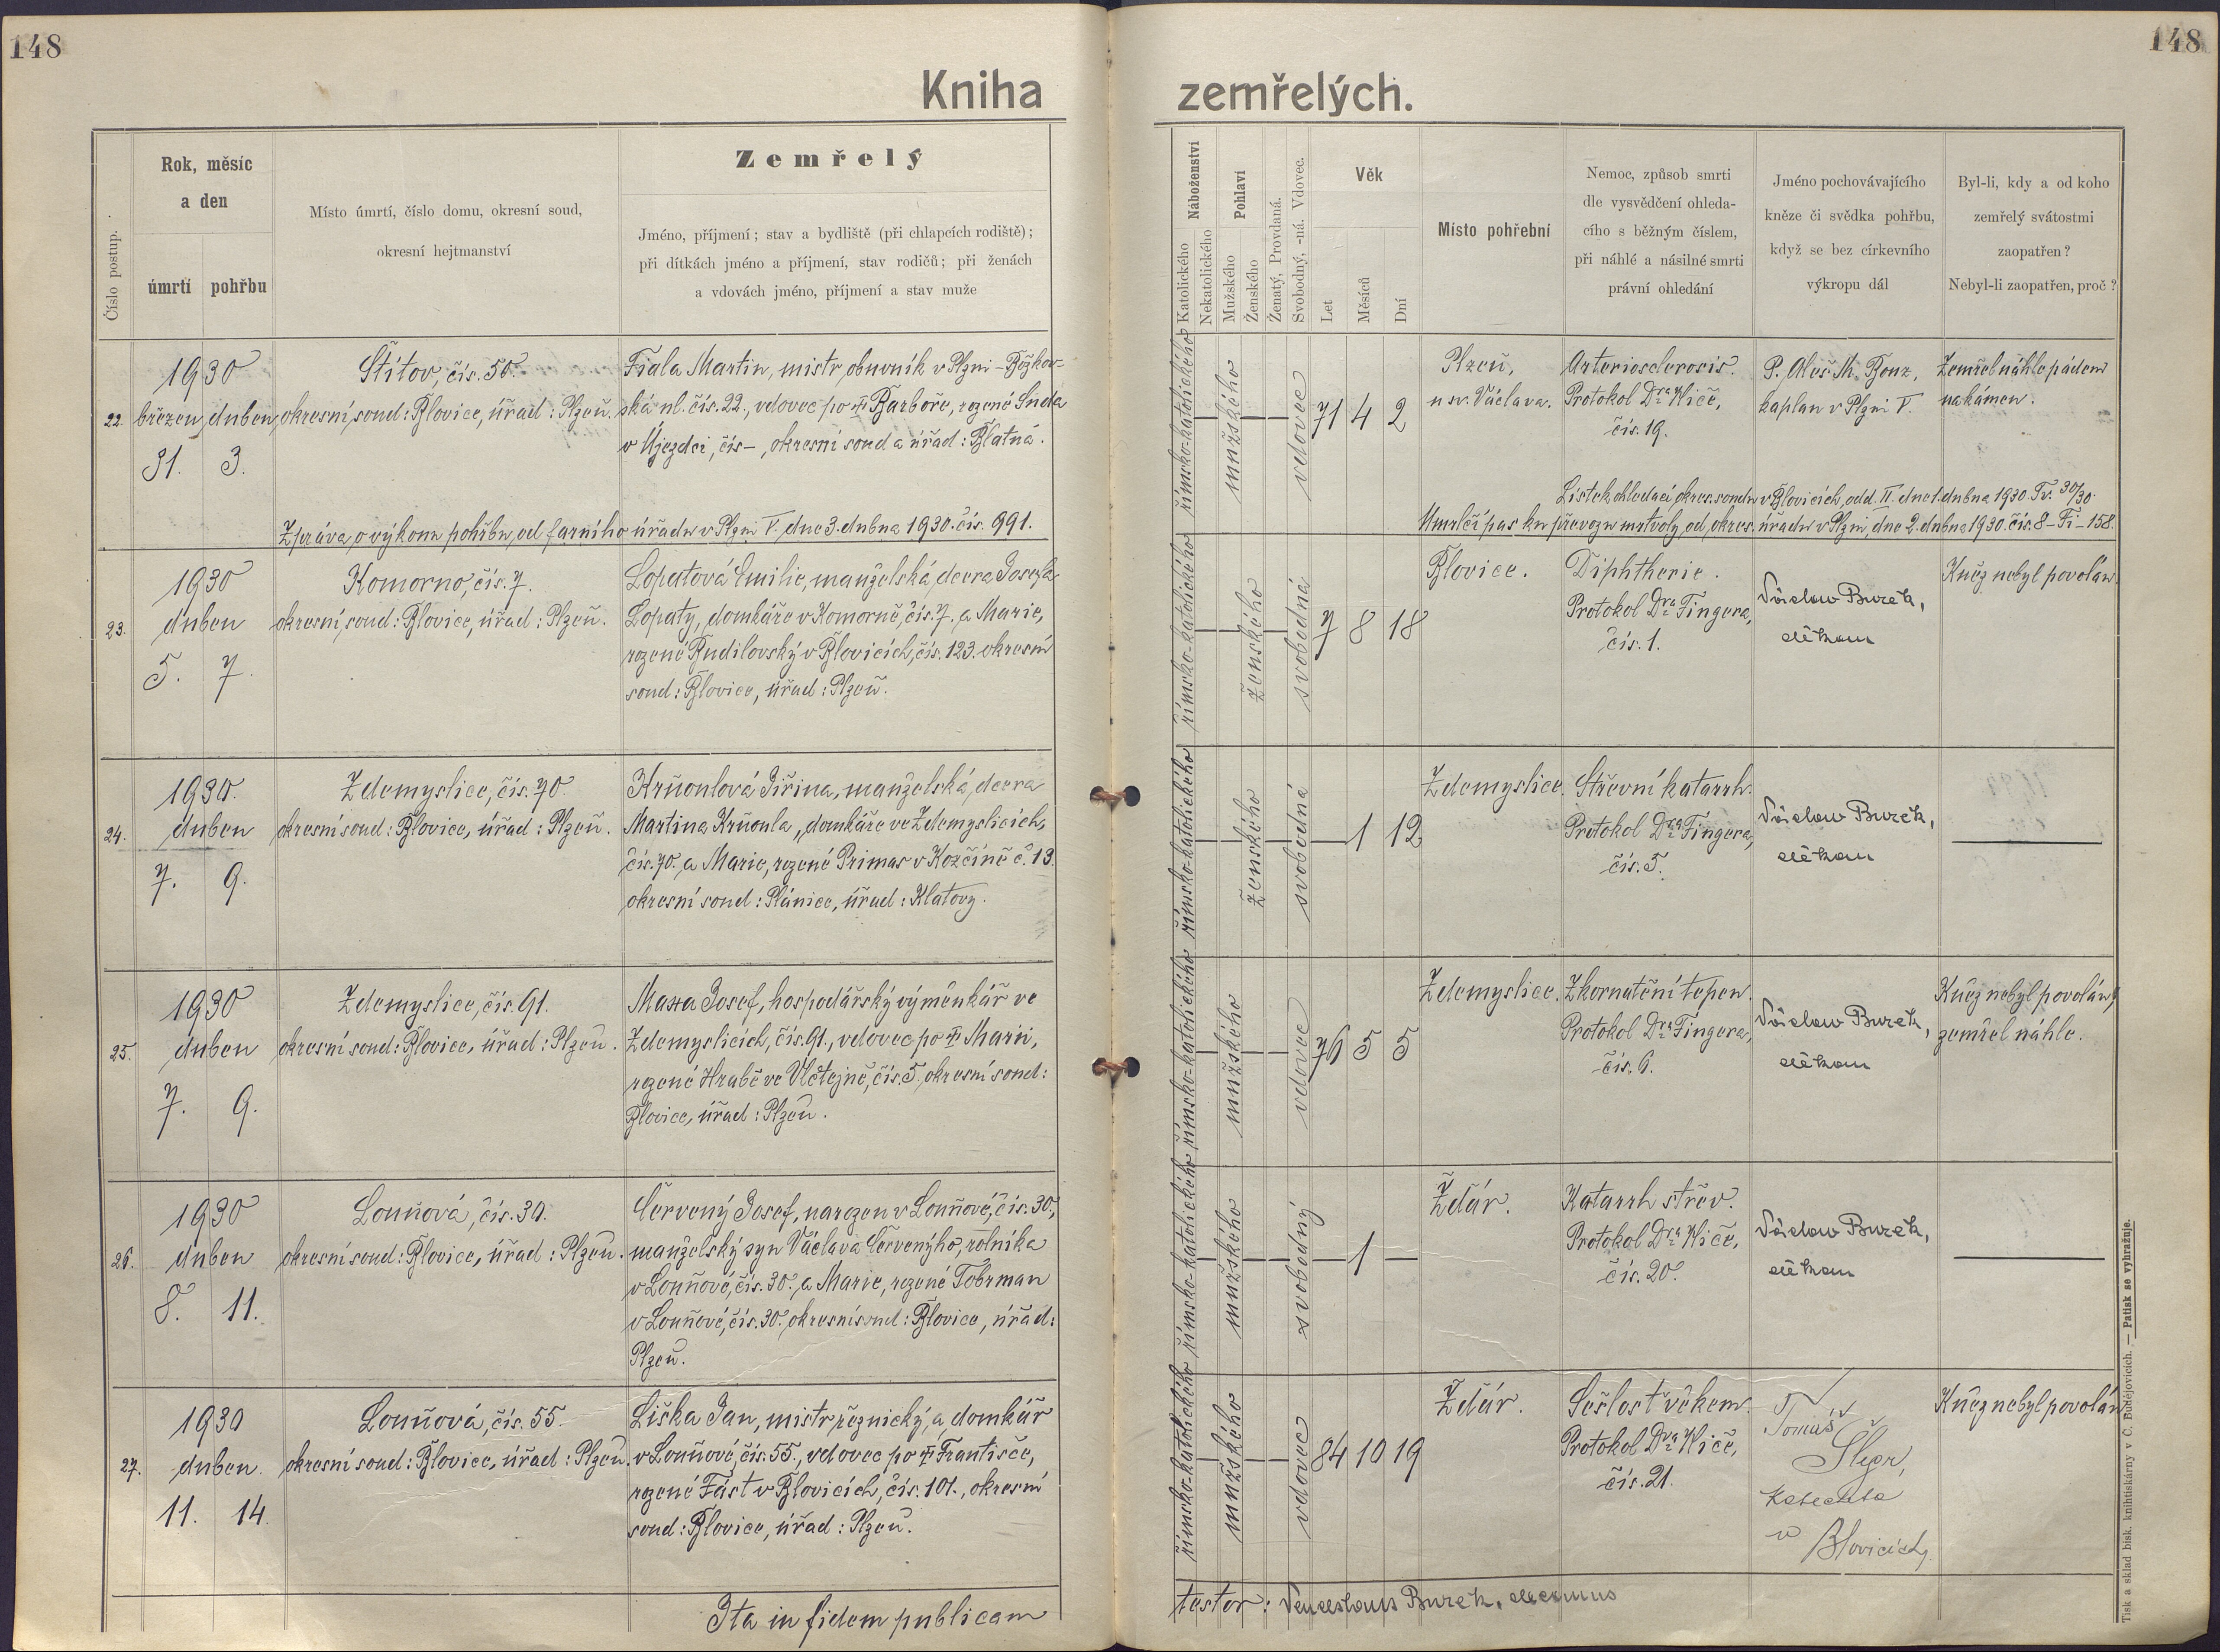 148
148
Kniha zemřelých.
Číslo postup.
Rok, měsíc
a den
úmrtí pohřbu
Místo úmrtí, číslo domu, okresní soud,
okresní hejtmanství
Zemřelý
Jméno, příjmení; stav a bydliště (při chlapcích rodiště);
při dítkách jméno a příjmení, stav rodičů; při ženách
a vdovách jméno, příjmení a stav muže
Náboženství
Katolického
Nekatolického
Pohlaví
Mužského
Ženského
Ženatý, Provdaná.
Svobodný, -ná. Vdovec.
Věk
Let
Měsíců
Dní
Místo pohřební
Nemoc, způsob smrti
dle vysvědčení ohleda-
cího s běžným číslem,
při náhlé a násilné smrti
právní ohledání
Jméno pochovávajícího
kněze či svědka pohřbu,
když se bez církevního
výkropu dál
Byl-li, kdy a od koho
zemřelý svátostmi
zaopatřen?
Nebyl-li zaopatřen, proč?
22.
1930
březen duben
31. 3.
Štítov, čís. 50.
okresní soud: Blovice, úřad: Plzeň.
Fiala Martin, mistr obuvník v Plzni - Božkov-
ská ul. čís. 22., vdovec po † Barboře, rozené Suda
v Újezdci, čís -, okresní soud a úřad: Blatná.
římsko-katolického
mužského
vdovec
71 4 2
Plzeň,
u sv. Václava.
Arteriosclerosis.
Protokol Dra Wiče,
čís. 19.
P. Aleš M. Bonz,
kaplan v Plzni V.
Zemřel náhle pádem
na kámen.
Lístek ohledací okres. soudu v Blovicích, odd. II. dne 1. dubna 1930. Tv. 30/30.
Zpráva o výkonu pohřbu od farního úřadu v Plzni V. dne 3. dubna 1930. čís. 991.
Umrlčí pas ku převozu mrtvoly, od okres. úřadu v Plzni, dne 2. dubna 1930. čís. 8 - Fi - 158.
23.
1930
duben
5. 7.
Komorno, čís. 7.
okresní soud: Blovice, úřad: Plzeň.
Lopatová Emilie, manželská dcera Josefa
Lopaty, domkáře v Komorně, čís. 7. a Marie,
rozené Budilovský v Blovicích, čís. 123. okresní
soud: Blovice, úřad: Plzeň.
římsko-katolického
ženského
svobodná
7 8 18
Blovice.
Diphtherie.
Protokol Dra Fingera,
čís. 1.
Václav Bureš,
děkan
Kněz nebyl povolán.
24.
1930.
duben
7. 9.
Zdemyslice, čís. 70.
okresní soud: Blovice, úřad: Plzeň.
Krňoulová Jiřina, manželská dcera
Martina Krňoula, domkáře ve Zdemyslicích,
čís. 70. a Marie, rozené Primas v Kozčíně č. 13.
okresní soud: Plánice, úřad: Klatovy.
římsko-katolického
ženského
svobodná
1 12
Zdemyslice.
Střevní katarrh.
Protokol Dra Fingera,
čís. 5.
Václav Bureš,
děkan
25.
1930
duben
7. 9.
Zdemyslice, čís. 91.
okresní soud: Blovice, úřad: Plzeň.
Maxa Josef, hospodářský výměnkář ve
Zdemyslicích, čís. 91., vdovec po † Marii,
rozené Hrabě ve Vlčtejně, čís. 5. okresní soud:
Blovice, úřad: Plzeň.
římsko-katolického
mužského
vdovec
76 5 5
Zdemyslice.
Zkornatění tepen.
Protokol Dra Fingera,
čís. 6.
Václav Bureš,
děkan
Kněz nebyl povolán,
zemřel náhle.
26.
1930
duben
8. 11.
Louňová, čís. 30.
okresní soud: Blovice, úřad: Plzeň.
Červený Josef, narozen v Louňové, čís. 30.,
manželský syn Václava Červenýho, rolníka
v Louňové, čís. 30. a Marie, rozené Tobrman
v Louňové, čís. 30. okresní soud: Blovice, úřad:
Plzeň.
římsko-katolického
mužského
svobodný
1
Ždár.
Katarrh střev.
Protokol Dra Wiče,
čís. 20.
Václav Bureš,
děkan
27.
1930
duben
11. 14.
Louňová, čís. 55.
okresní soud: Blovice, úřad: Plzeň.
Liška Jan, mistr řeznický, a domkář
v Louňové, čís. 55., vdovec po † Františce,
rozené Fást v Blovicích, čís. 101., okresní
soud: Blovice, úřad: Plzeň.
římsko-katolického
mužského
vdovec
84 10 19
Ždár.
Sešlost věkem.
Protokol Dra Wiče,
čís. 21.
Tomáš
katecheta
v
Blovicích
Kněz nebyl povolán
Ita in fidem publicam
testor: Venceslaus Bureš, decanus
Tisk a sklad bisk. knihtiskárny v Č. Budějovicích. — Patisk se vyhražuje.